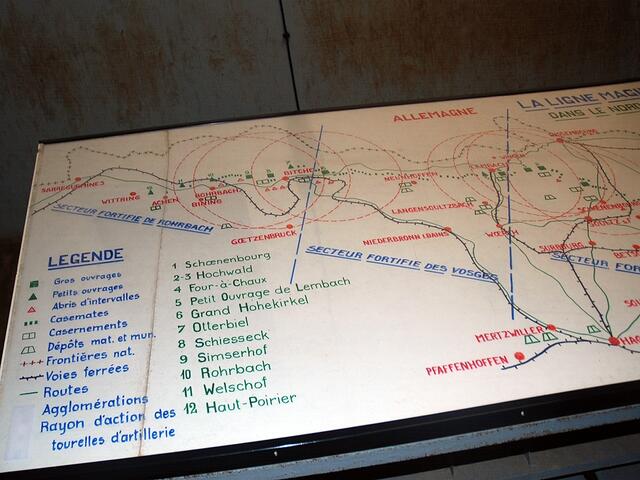 ALLEMAGNE
LA LIGNE MAGI
DANS LE NOR
SARREGUEMINES
WITTRING
ACHEN
ROHRBACH
BINING
BITCHE
NEUNHOFFEN
LANGENSOULTZBACH
GOETZENBRUCK
NIEDERBRONN (BAINS)
WOERTH
SURBOURG
SECTEUR FORTIFIE DE ROHRBACH
SECTEUR FORTIFIE DES VOSGES
SECTEUR FOR
MERTZWILLER
PFAFFENHOFFEN
HAG
LEGENDE
Gros ouvrages
Petits ouvrages
Abris d'intervalles
Casemates
Casernements
Dépôts mat. et mun.
Frontières nat.
Voies ferrées
Routes
Agglomérations
Rayon d'action des
tourelles d'artillerie
1 Schœnenbourg
2-3 Hochwald
4 Four-à-Chaux
5 Petit Ouvrage de Lembach
6 Grand Hohekirkel
7 Otterbiel
8 Schiesseck
9 Simserhof
10 Rohrbach
11 Welschof
12 Haut-Poirier